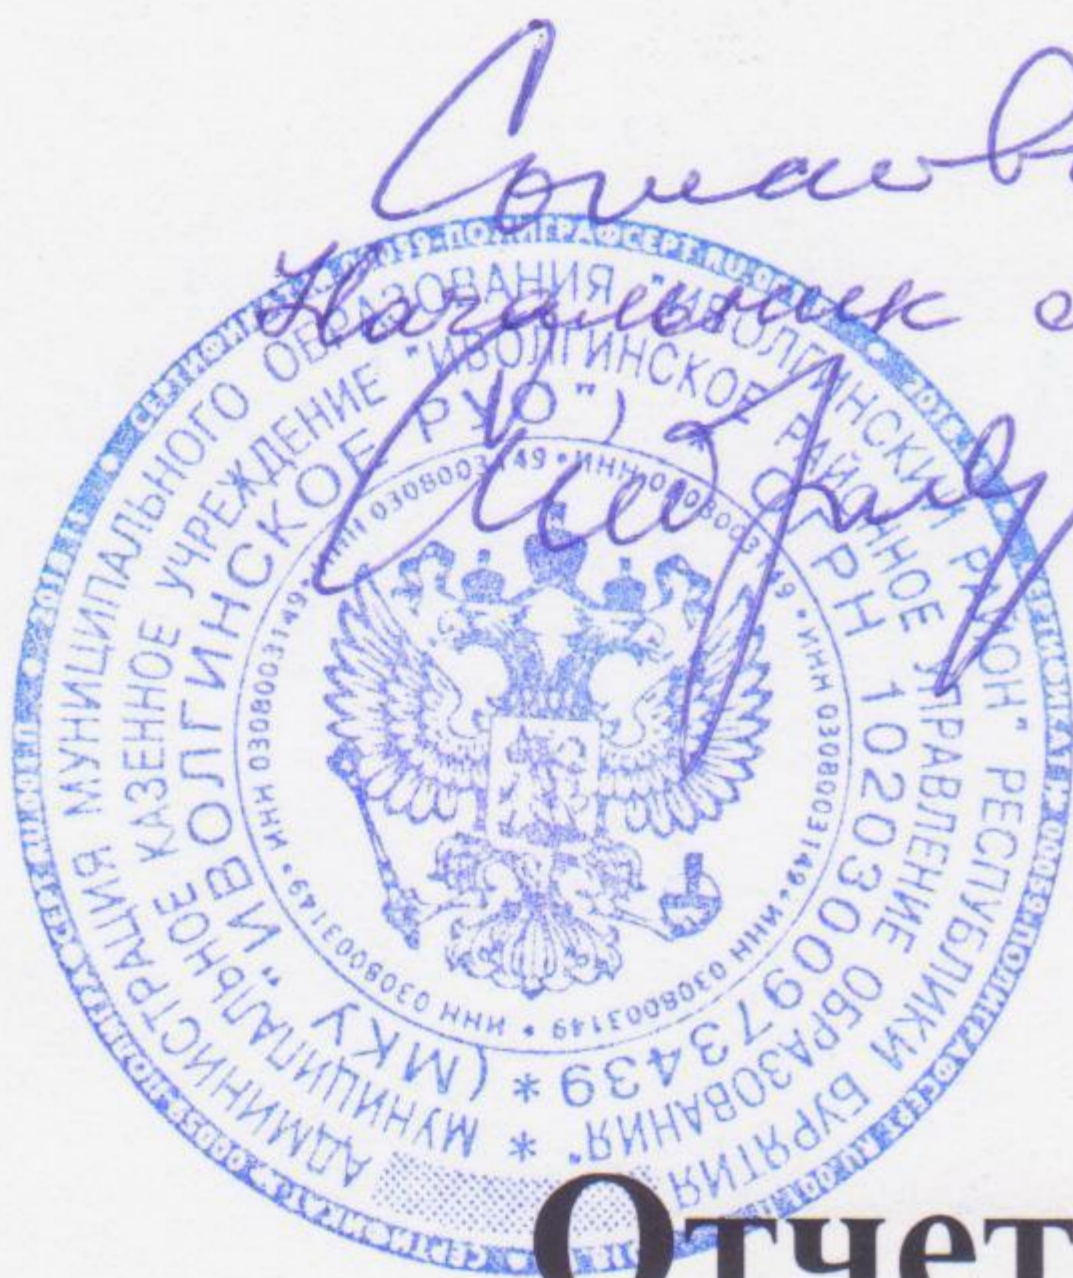 Согласов
Начальник
АДМИНИСТРАЦИЯ МУНИЦИПАЛЬНОГО ОБРАЗОВАНИЯ "ИВОЛГИНСКИЙ РАЙОН" РЕСПУБЛИКИ БУРЯТИЯ
МУНИЦИПАЛЬНОЕ КАЗЕННОЕ УЧРЕЖДЕНИЕ "ИВОЛГИНСКОЕ РАЙОННОЕ УПРАВЛЕНИЕ ОБРАЗОВАНИЯ" *
(МКУ "ИВОЛГИНСКОЕ РУО") * ОГРН 1020300973439 *
ИНН 0308003149 • ИНН 0308003149 • ИНН 0308003149 • ИНН 0308003149 • ИНН 0308003149 • ИНН 0308003149 •
Отчет